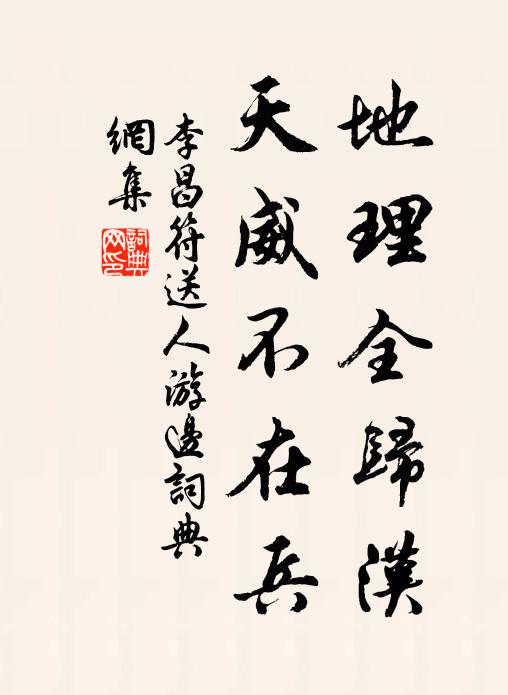 地理全歸漢
天威不在兵
李昌符送人游邊詞典
網集
詞典
网印